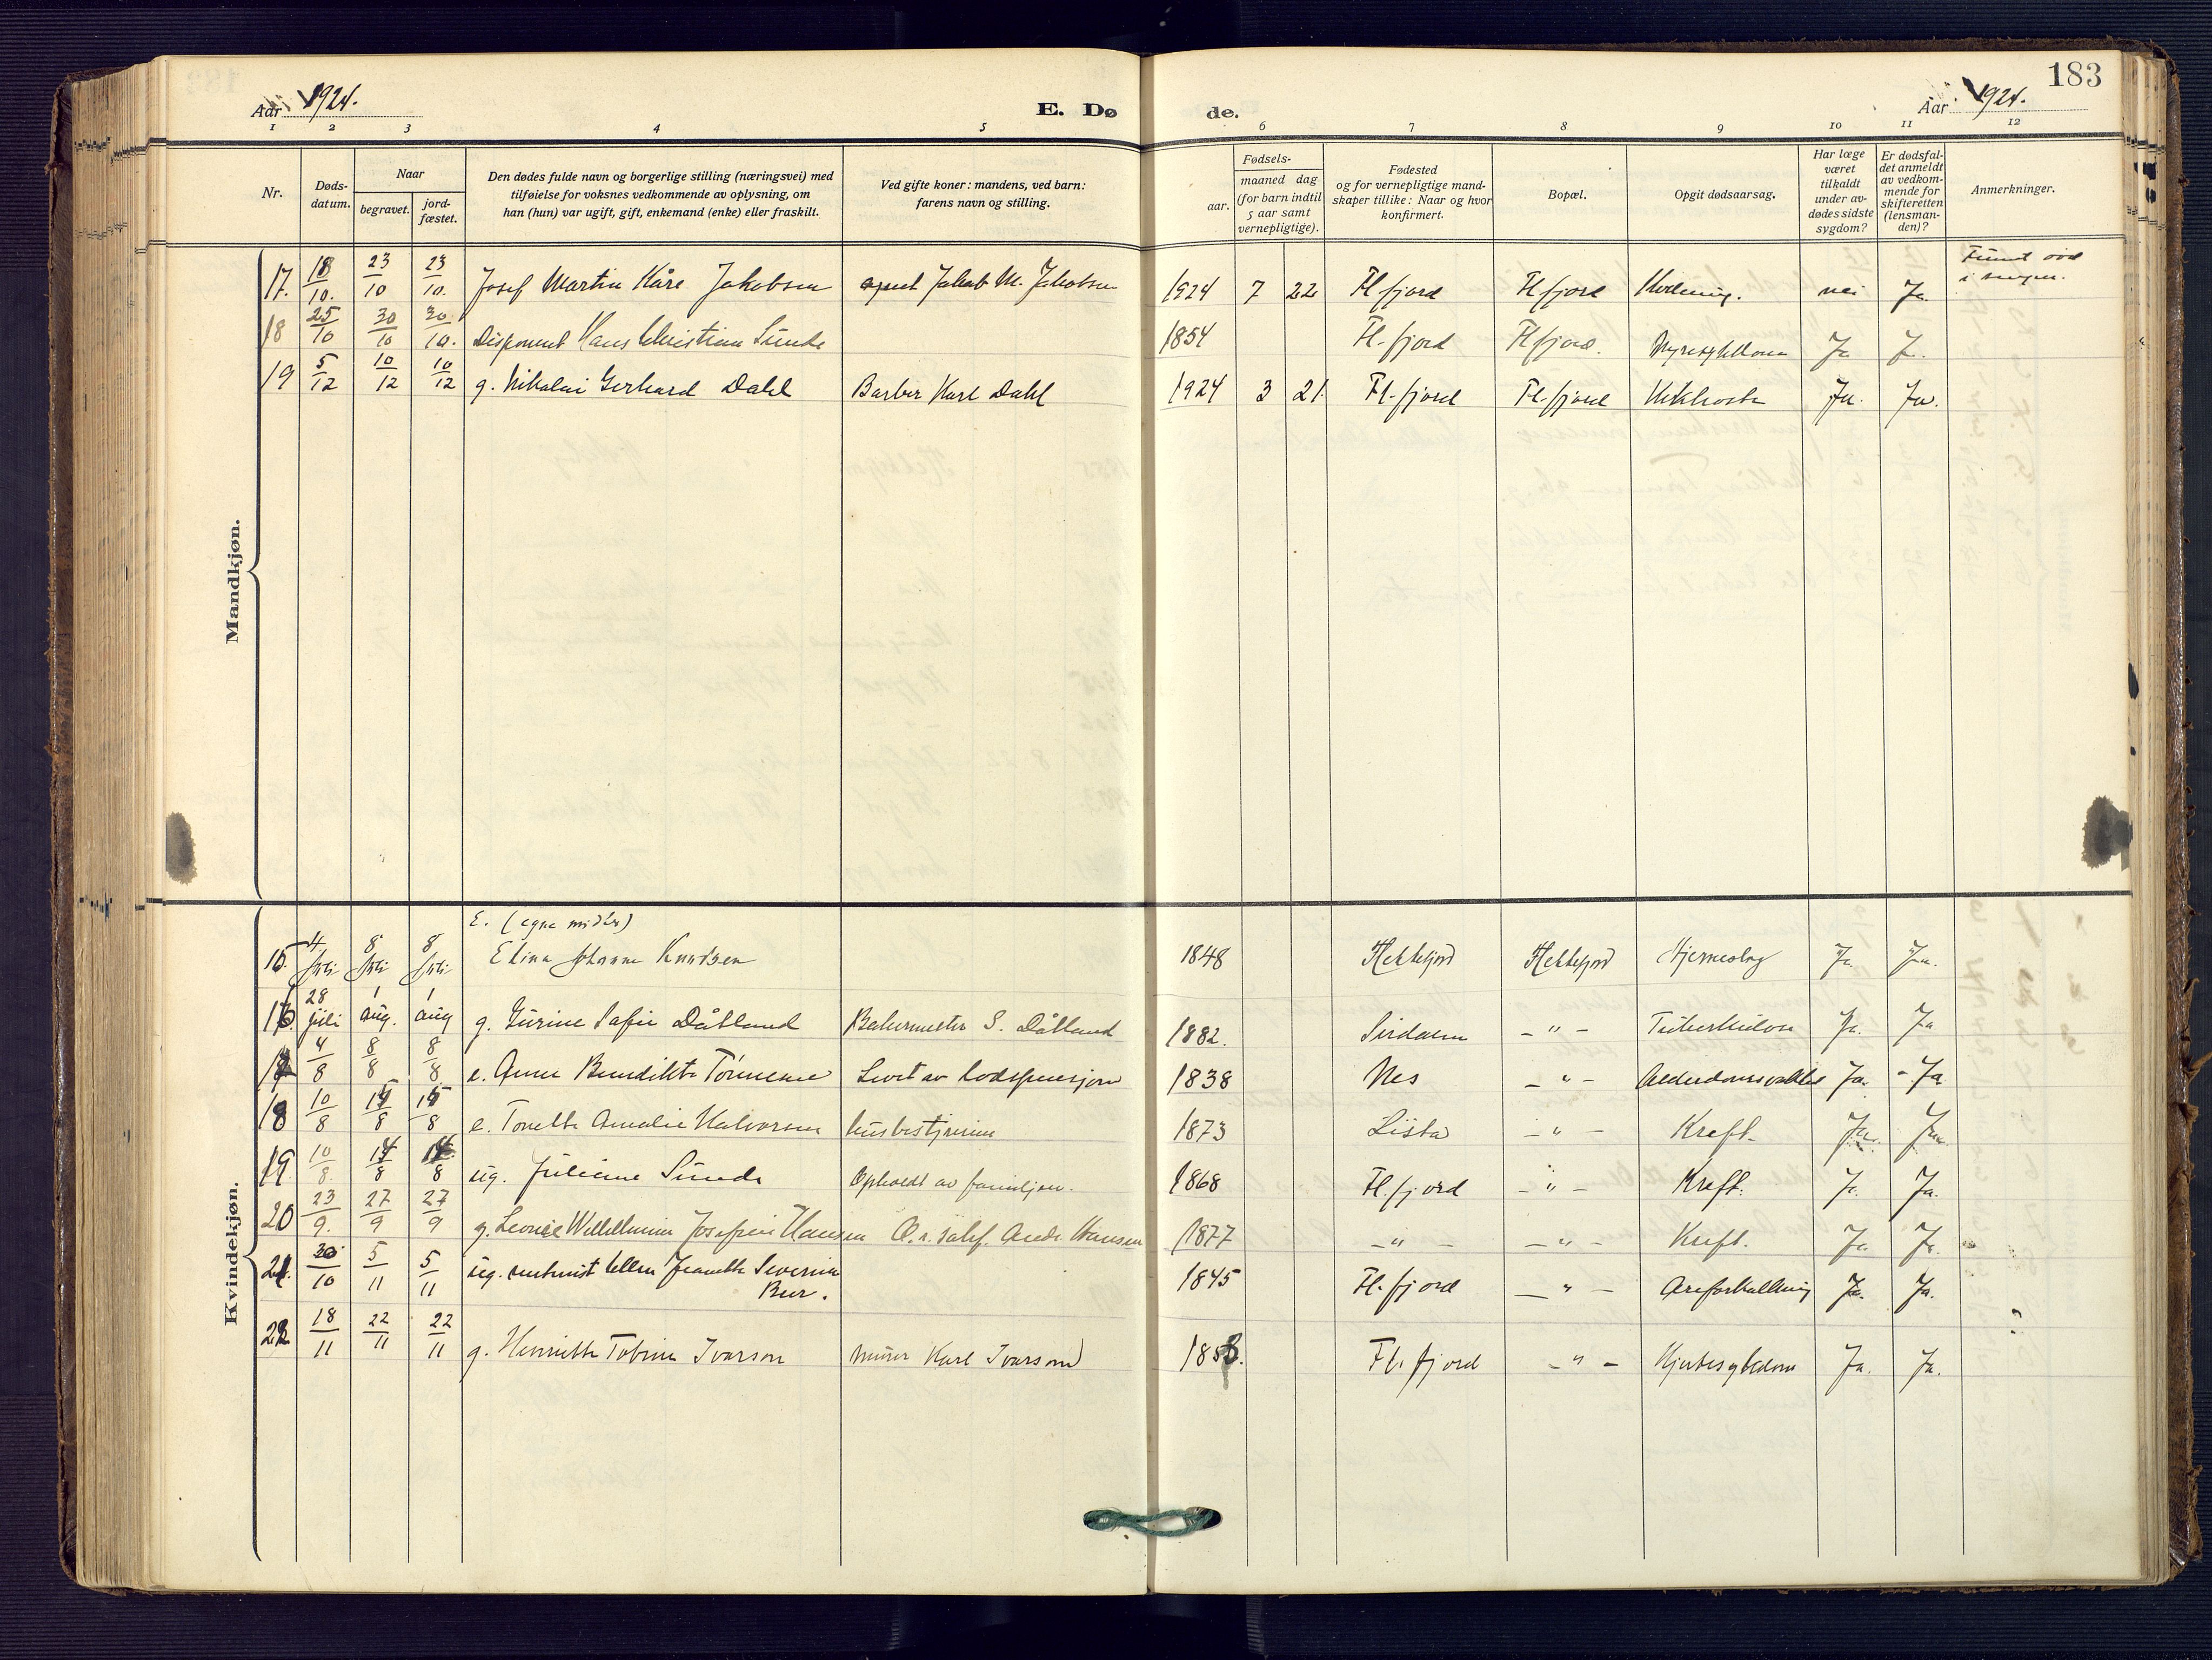 183
Aar 1924. E. Dø de. Aar 1924.
1 2 3 4 5 6 7 8 9 10 11 12
Nr.
Døds-
datum.
Naar
begravet.
jord-
fæstet.
Den dødes fulde navn og borgerlige stilling (næringsvei) med
tilføielse for voksnes vedkommende av oplysning, om
han (hun) var ugift, gift, enkemand (enke) eller fraskilt.
Ved gifte koner: mandens, ved barn:
farens navn og stilling.
Fødsels-
aar.
maaned dag
(for barn indtil
5 aar samt
vernepligtige).
Fødested
og for vernepligtige mand-
skaper tillike: Naar og hvor
konfirmert.
Bopæl.
Opgit dødsaarsag.
Har læge
været
tilkaldt
under av-
dødes sidste
sygdom?
Er dødsfal-
det anmeldt
av vedkom-
mende for
skifteretten
(lensman-
den)?
Anmerkninger.
Mandkjøn.
17. 18/10. 23/10 23/10. Josef Martin Kåre Jakobsen agent Jakob M. Jakobsen 1924 7 22 Fl fjord Fl fjord Kvelning. nei Ja. Fundt død
i sengen.
18 25/10 30/10 30/10. Disponent Hans Christian Sunde 1854 Fl. fjord Fl fjord. Nyresykdom Ja Ja.
19 5/12 10/12 10/12 g. Nikolai Gerhard Dahl Barber Karl Dahl 1924 3 21. Fl. fjord Fl. fjord Kikhoste Ja. Ja.
Kvindekjøn.
E. (egne midler)
15. 4/juli 8/juli 8/juli Elina Johanne Knudsen 1848 Flekkefjord Flekkefjord Hjerneslag Ja Ja.
16. 28 juli 1 aug. 1 aug g. Gurine Sofie Dåtland Bakermester S. Dåtland 1882. Sirdalen - " - Tuberkulose Ja. Ja
17 4/8 8/8 8/8 e. Anne Benedikte Tønnesen Levet av lodspensjon 1838 Nes - " - Alderdomssvakhet Ja. - Ja
18 10/8 15/8 15/8 e. Tonette Amalie Halvorsen husbestyrerinne 1873 Lista - " - Kreft. Ja. Ja.
19. 10/8. 14/8 14/8 ug. Juliane Sunde Opholdt av familjen. 1868 Fl. fjord - " - Kreft. Ja. Ja.
20 23/9. 27/9 27/9 g. Leonie Willhelmine Josefine Hansen Andr. Hansen 1877 - " - - " - Kreft. Ja Ja.
21. 30/10 5/11 5/11 ug. Ellen Jeanette Severine
Beer. 1845 Fl. fjord - " - Areforkalkning Ja. Ja.
22 18/11 22/11 22/11 g. Henriette Tobine Ivarson murer Karl Ivarson 1858. Fl. fjord - " - Hjertesykdom Ja. Ja.